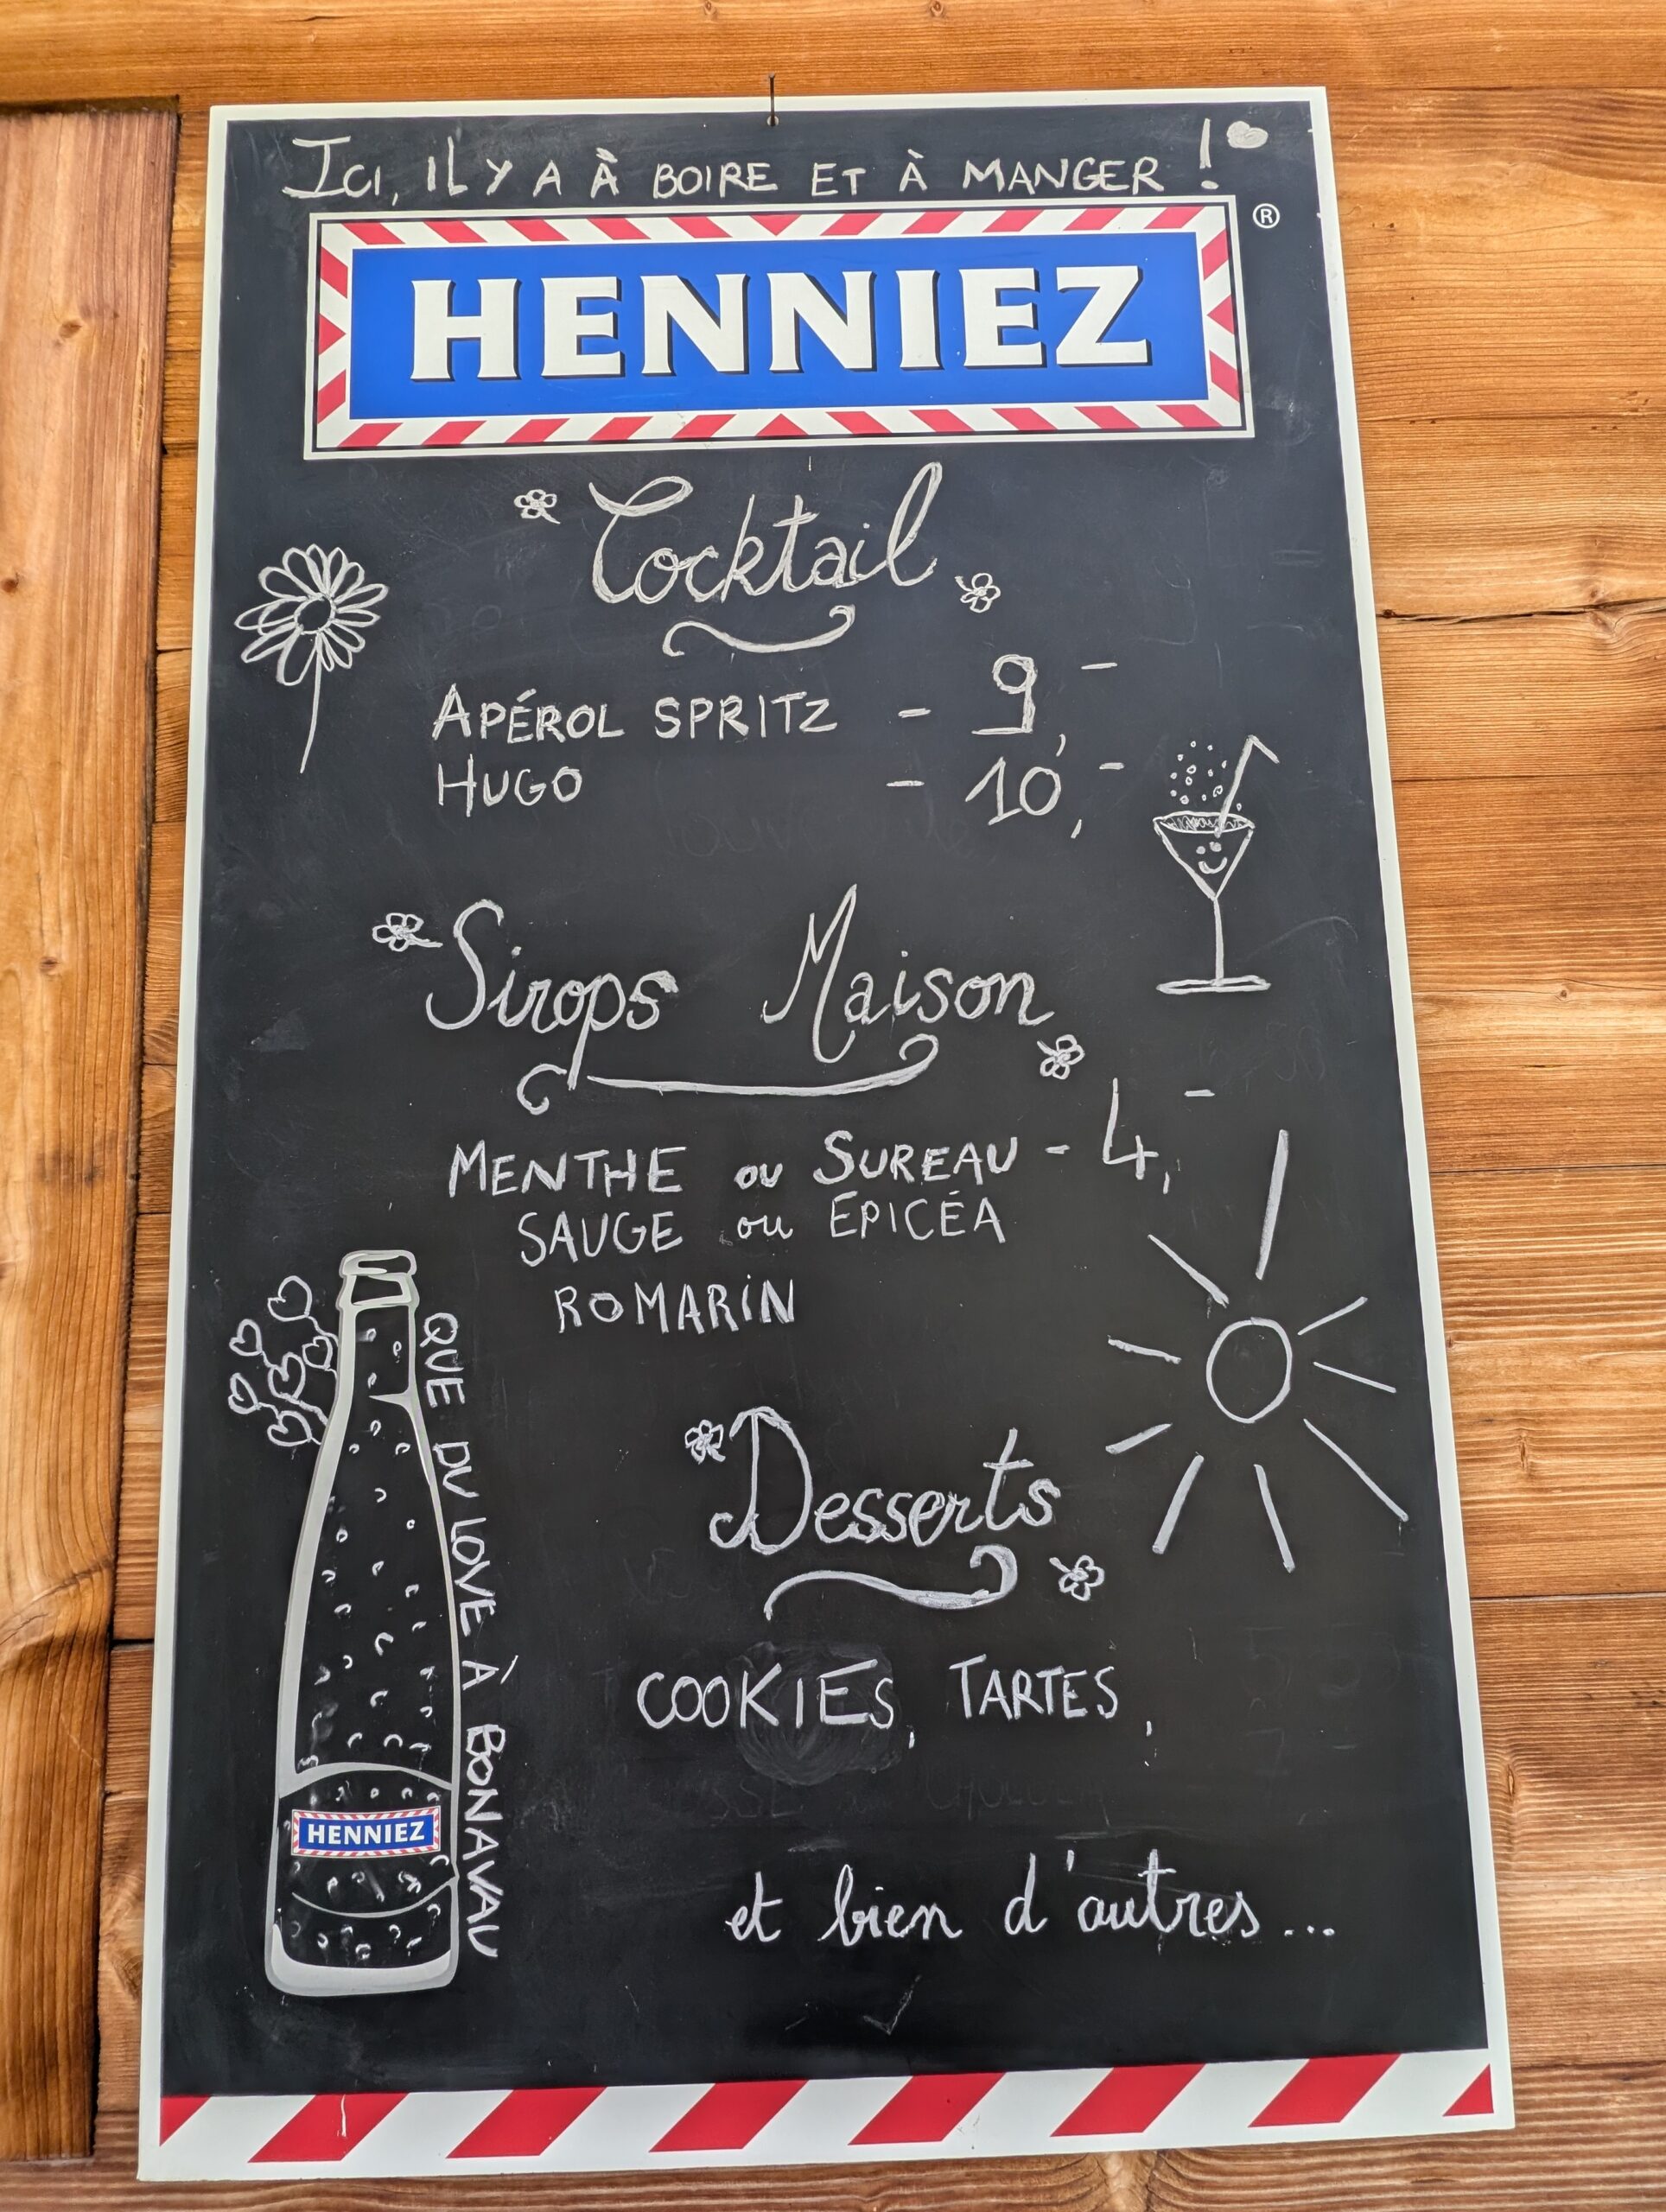 Ici, il y a à boire et à manger !
HENNIEZ®
Cocktail
APÉROL SPRITZ - 9,-
HUGO - 10,-
Sirops Maison
MENTHE ou SUREAU - 4,-
SAUGE ou EPICÉA
ROMARIN
QUE DU LOVE À BONAVAU
Desserts
COOKIES, TARTES,
et bien d'autres...
HENNIEZ